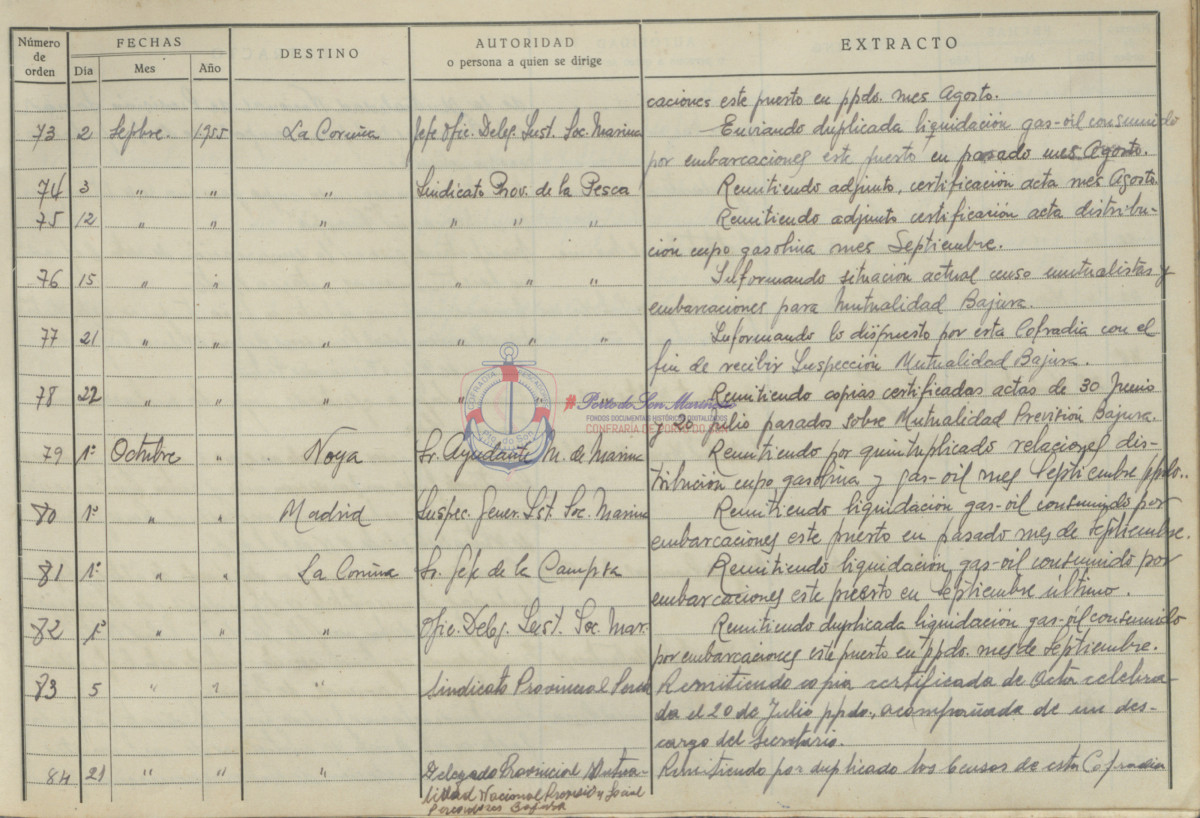 Número de orden FECHAS DESTINO AUTORIDAD o persona a quien se dirige EXTRACTO
Dia Mes Año
caciones este puerto en ppdo. mes Agosto.
73 2 Sepbre. 1.955 La Coruña Jefe Ofic. Deleg. Inst. Soc. Marina Enviando duplicada liquidación gas-oil consumido
por embarcaciones este puerto en pasado mes Agosto.
74 3 " " " Sindicato Prov. de la Pesca Remitiendo adjunto, certificación acta mes Agosto.
75 12 " " " " " " Remitiendo adjunto certificación acta distribu-
ción cupo gasolina mes Septiembre.
76 15 " " " " " " Informando situación actual censo mutualistas y
embarcaciones para Mutualidad Bajura.
77 21 " " " " " " Informando lo dispuesto por esta Cofradia con el
fin de recibir Inspección Mutualidad Bajura.
78 22 " " " " Remitiendo copias certificadas actas de 30 Junio
y 20 julio pasados sobre Mutualidad Previsión Bajura.
COFRADÍA PESCADORES
Pto. do Son
# Porto do Son Mariñeiro
FONDOS DOCUMENTAIS HISTÓRICOS DIGITALIZADOS
CONFRARÍA DE PORTO DO SON
79 1º Octubre " Noya Sr. Ayudante M. de Marina Remitiendo por quintuplicado relaciones dis-
tribución cupo gasolina y gas-oil mes Septiembre ppdo..
80 1º " " Madrid Inspec. Gener. Ist. Soc. Marina Remitiendo liquidación gas-oil consumido por
embarcaciones este puerto en pasado mes de septiembre.
81 1º " " La Coruña Sr. Jefe de la Campsa Remitiendo liquidación gas-oil consumido por
embarcaciones este puerto en Septiembre último.
82 1º " " " Ofic. Deleg. Inst. Soc. Mar. Remitiendo duplicada liquidación gas-oil consumido
por embarcaciones este puerto en ppdo. mes de septiembre.
83 5 " " " Sindicato Provincial Pesca Remitiendo copia certificada de Acta celebra-
da el 20 de Julio ppdo., acompañada de un des-
cargo del Secretario.
84 21 " " " Delegado Provincial Mutua- Remitiendo por duplicado los Censos de esta Cofradia
lidad Nacional Prevision y Social
Pescadores Bajura